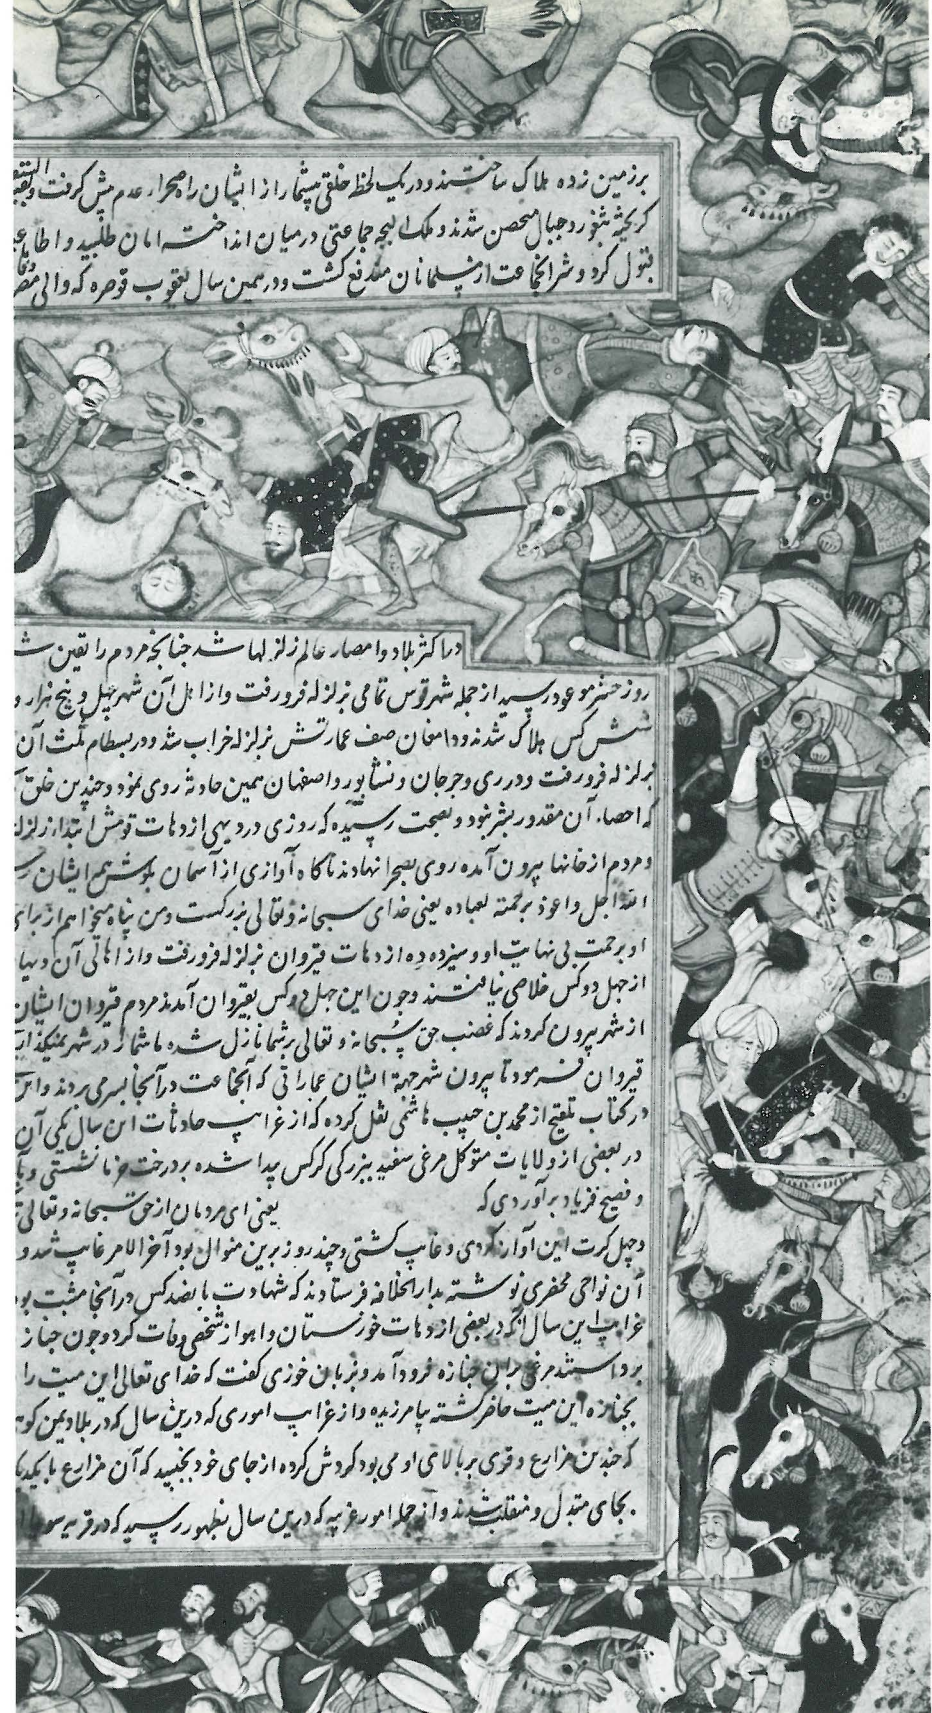 برزمین زده هلاک ساختند و در یک لحظه خلقی بیشمار از ایشان راه صحراء عدم پیش کرفت
کریخته بثغور و جبال متحصن شدند و ملک البجه جماعتی در میان انداخته امان طلبید و اطاعت
قبول کرد و شر انجماعت از مسلمانان مندفع کشت و در همین سال یعقوب قوصره که والی مصر
در اکثر بلاد و امصار عالم زلزلها شد چنانچه مردم را یقین
روز حشر موعود رسید از جمله شهر قومس تمامی بزلزله فرو رفت و از اهل آن شهر چهل و پنج هزار و
شش کس هلاک شدند و دامغان نصف عمارتش بزلزله خراب شد و در بسطام ثلث آن
بزلزله فرو رفت و در ری و جرجان و نشابور و اصفهان همین حادثه روی نمود و چندین خلق
که احصاء آن مقدور بشر نبود و بصحت رسیده که روزی در دیهی از دهات قومش ابتداء زلزله
و مردم از خانها بیرون آمده روی بصحرا نهادند ناکاه آوازی از آسمان بکوش همه ایشان
الله اجل و اعوذ برحمته لعباده یعنی خدای سبحانه و تعالی بزرکست و من پناه میخواهم از برای
او برحمت بی نهایت او و سیزده ده از دهات قیروان بزلزله فرو رفت و از اهالی آن دیها
از چهل دو کس خلاصی نیافتند و چون این چهل دو کس بقیروان آمدند مردم قیروان ایشان
از شهر بیرون کردند که غضب حق سبحانه و تعالی بر شما نازل شده ما شما را در شهر نمیکذاریم
قیروان فرمود تا بیرون شهر جهة ایشان عماراتی که انجماعت در آنجا بسر می بردند و این
در کتاب تلقیح از محمد بن حبیب هاشمی نقل کرده که از غرایب حادثات این سال یکی آن
در بعضی از ولایات متوکل مرغی سفید ببزرکی کرکس پیدا شده بر درخت خرما نشستی و
و فصیح فریاد بر آوردی که یعنی ای مردمان از حق سبحانه و تعالی
و چهل کرت این آواز کردی و غایب کشتی و چند روز برین منوال بود آخر الامر غایب شد و
آن نواحی محضری نوشته بدار الخلافه فرستادند که شهادت پانصد کس در آنجا مثبت بود
غرایب این سال آنکه در بعضی از دهات خوزستان و اهواز شخصی وفات کرد و چون جنازه
برداشتند مرغی بران جنازه فرود آمد و بزبان خوزی کفت که خدای تعالی این میت را
بجنازه این میت حاضر کشته بیامرزیده و از غرایب اموری که درین سال که در بلاد یمن
که چندین مزارع وقوی بر بالای او می بود کردش کرده از جای خود بجنبید که آن مزارع
بجای متبدل و منقلب شدند و از جمله امور غریبه که درین سال بظهور رسید که در قریه